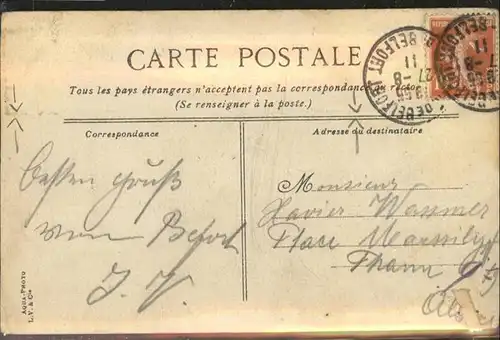 CARTE POSTALE
Tous les pays étrangers n'acceptent pas la correspondance au recto
(Se renseigner à la poste.)
Correspondance
Adresse du destinataire
Besten Gruß
von Belfort
J. V.
Monsieur
Xavier Wassmer
Place
Thann
AQUA-PHOTO
L.V. & Cie
BELFORT
11
27-8